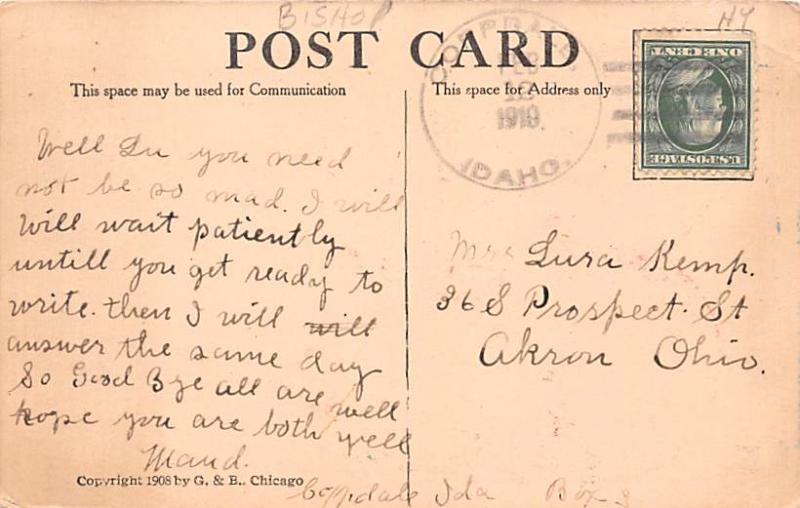 BISHOP
HY
POST CARD
This space may be used for Communication
This space for Address only
1910
IDAHO.
ONE CENT
U.S. POSTAGE
Well Lu you need
not be so mad. I will
Will wait patiently
untill you get ready to
write. then I will will
answer the same day
So Good Bye all are well
hope you are both well
Maud.
Copyright 1908 by G. & B., Chicago
Mrs Lura Kemp.
36 S Prospect St
Akron Ohio.
Ida Box 3